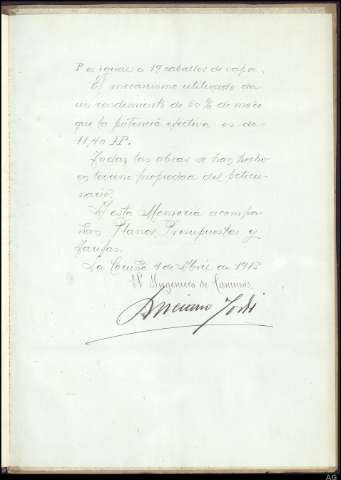 P es igual a 19 caballos de vapor.
El mecanismo utilizado da
un rendimiento de 60 % de modo
que la potencia efectiva es de
11,40 HP.
Todas las obras se han hecho
en terreno propiedad del peticio-
nario.
A esta Memoria acompa-
ñan Planos, Presupuestos y
Tarifas.
La Coruña 4 de Abril de 1915
El Ingeniero de Caminos,
Luciano Yordi
AG